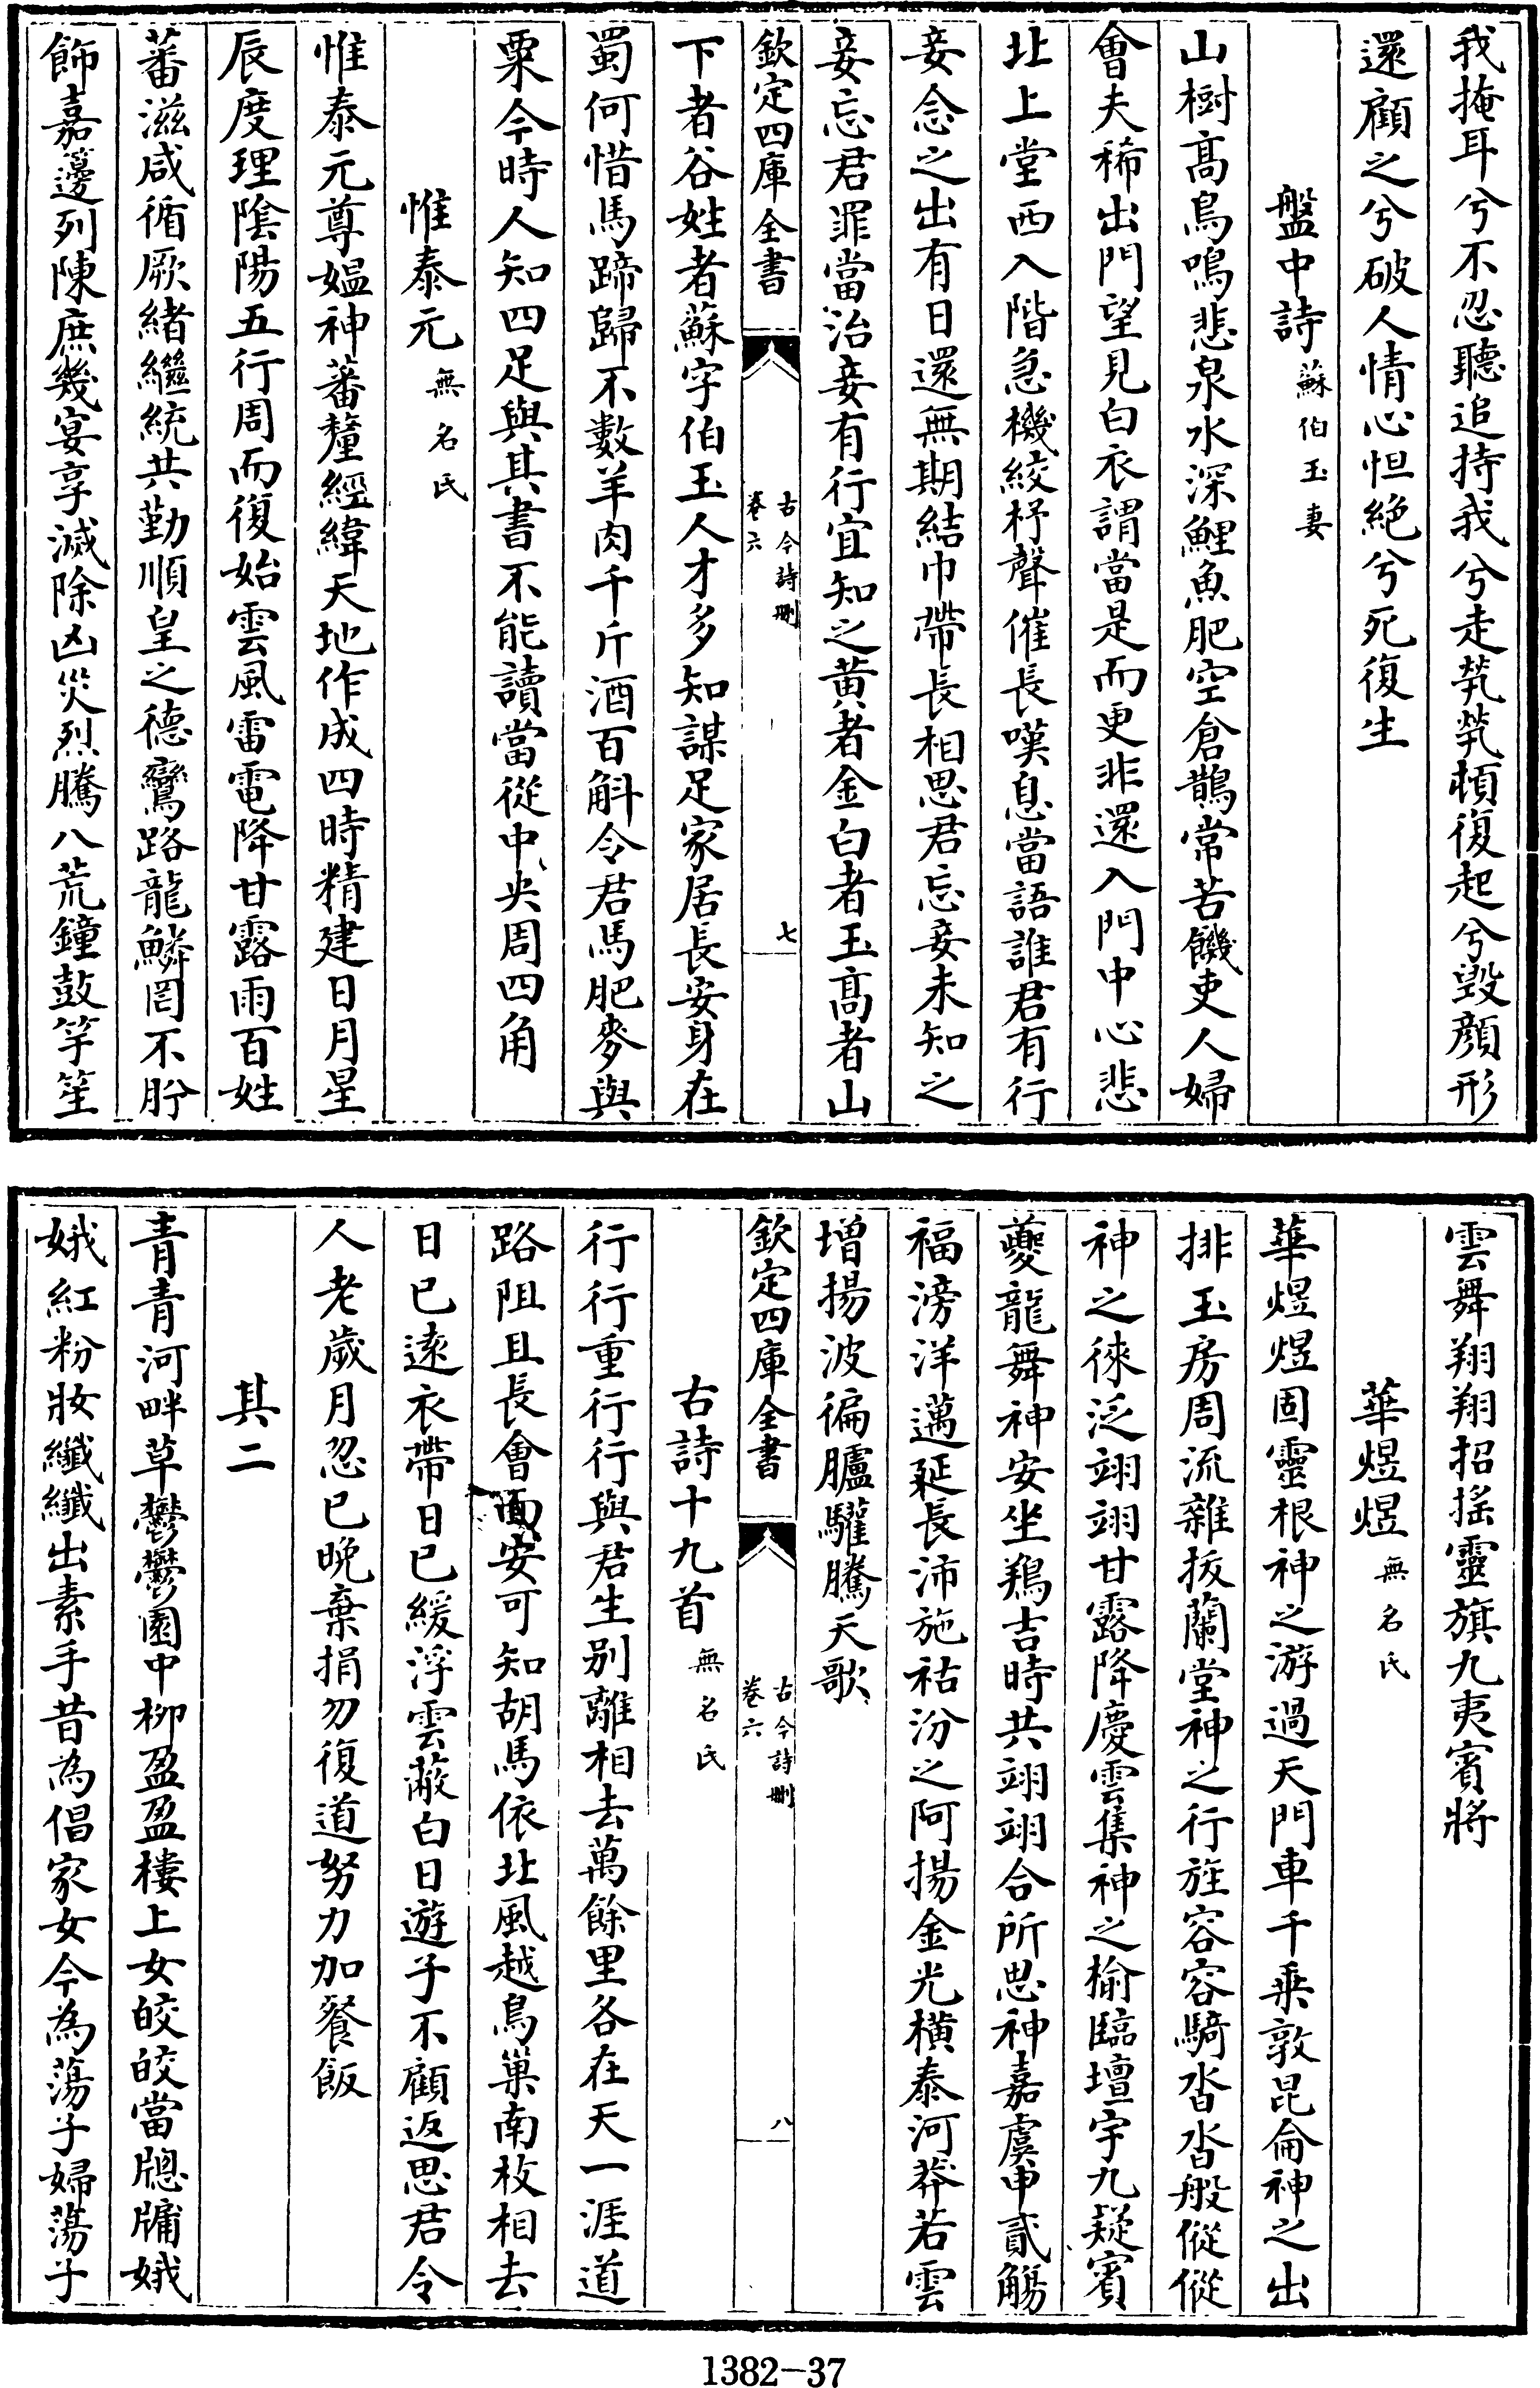 我掩耳兮不忍聽追持我兮走煢煢頓復起兮毀顔形
還顧之兮破人情心怛絶兮死復生
盤中詩蘇伯玉妻
山樹髙鳥鳴悲泉水深鯉魚肥空倉鵲常苦饑吏人婦
會夫稀出門望見白衣謂當是而更非還入門中心悲
北上堂西入階急機絞杼聲催長嘆息當語誰君有行
妾念之出有日還無期結巾帶長相思君忘妾未知之
妾忘君罪當治妾有行宜知之黄者金白者玉髙者山
欽定四庫全書
古今詩刪
卷六
七
下者谷姓者蘇字伯玉人才多知謀足家居長安身在
蜀何惜馬蹄歸不數羊肉千斤酒百斛令君馬肥麥與
粟今時人知四足與其書不能讀當從中央周四角
惟泰元無名氏
惟泰元尊媪神蕃釐經緯天地作成四時精建日月星
辰度理隂陽五行周而復始雲風雷電降甘露雨百姓
蕃滋咸循厥緒繼統共勤順皇之德鸞路龍鱗罔不肸
飾嘉籩列陳庶幾宴享滅除凶災烈騰八荒鐘鼓竽笙
雲舞翔翔招搖靈旗九夷賓將
華煜煜無名氏
華煜煜固靈根神之游過天門車千乗敦昆侖神之出
排玉房周流雜拔蘭堂神之行旌容容騎沓沓般傱傱
神之徠泛翊翊甘露降慶雲集神之揄臨壇宇九疑賓
夔龍舞神安坐鵷吉時共翊翊合所思神嘉虞申貳觴
福滂洋邁延長沛施祜汾之阿揚金光横泰河莽若雲
增揚波徧臚驩騰天歌
欽定四庫全書
古今詩刪
卷六
八
古詩十九首無名氏
行行重行行與君生别離相去萬餘里各在天一涯道
路阻且長會面安可知胡馬依北風越鳥巢南枝相去
日已逺衣帶日已緩浮雲蔽白日遊子不顧返思君令
人老歲月忽已晚棄捐勿復道努力加餐飯
其二
青青河畔草鬱鬱園中柳盈盈樓上女皎皎當牕牖娥
娥紅粉妝纖纖出素手昔為倡家女今為蕩子婦蕩子
1382-37